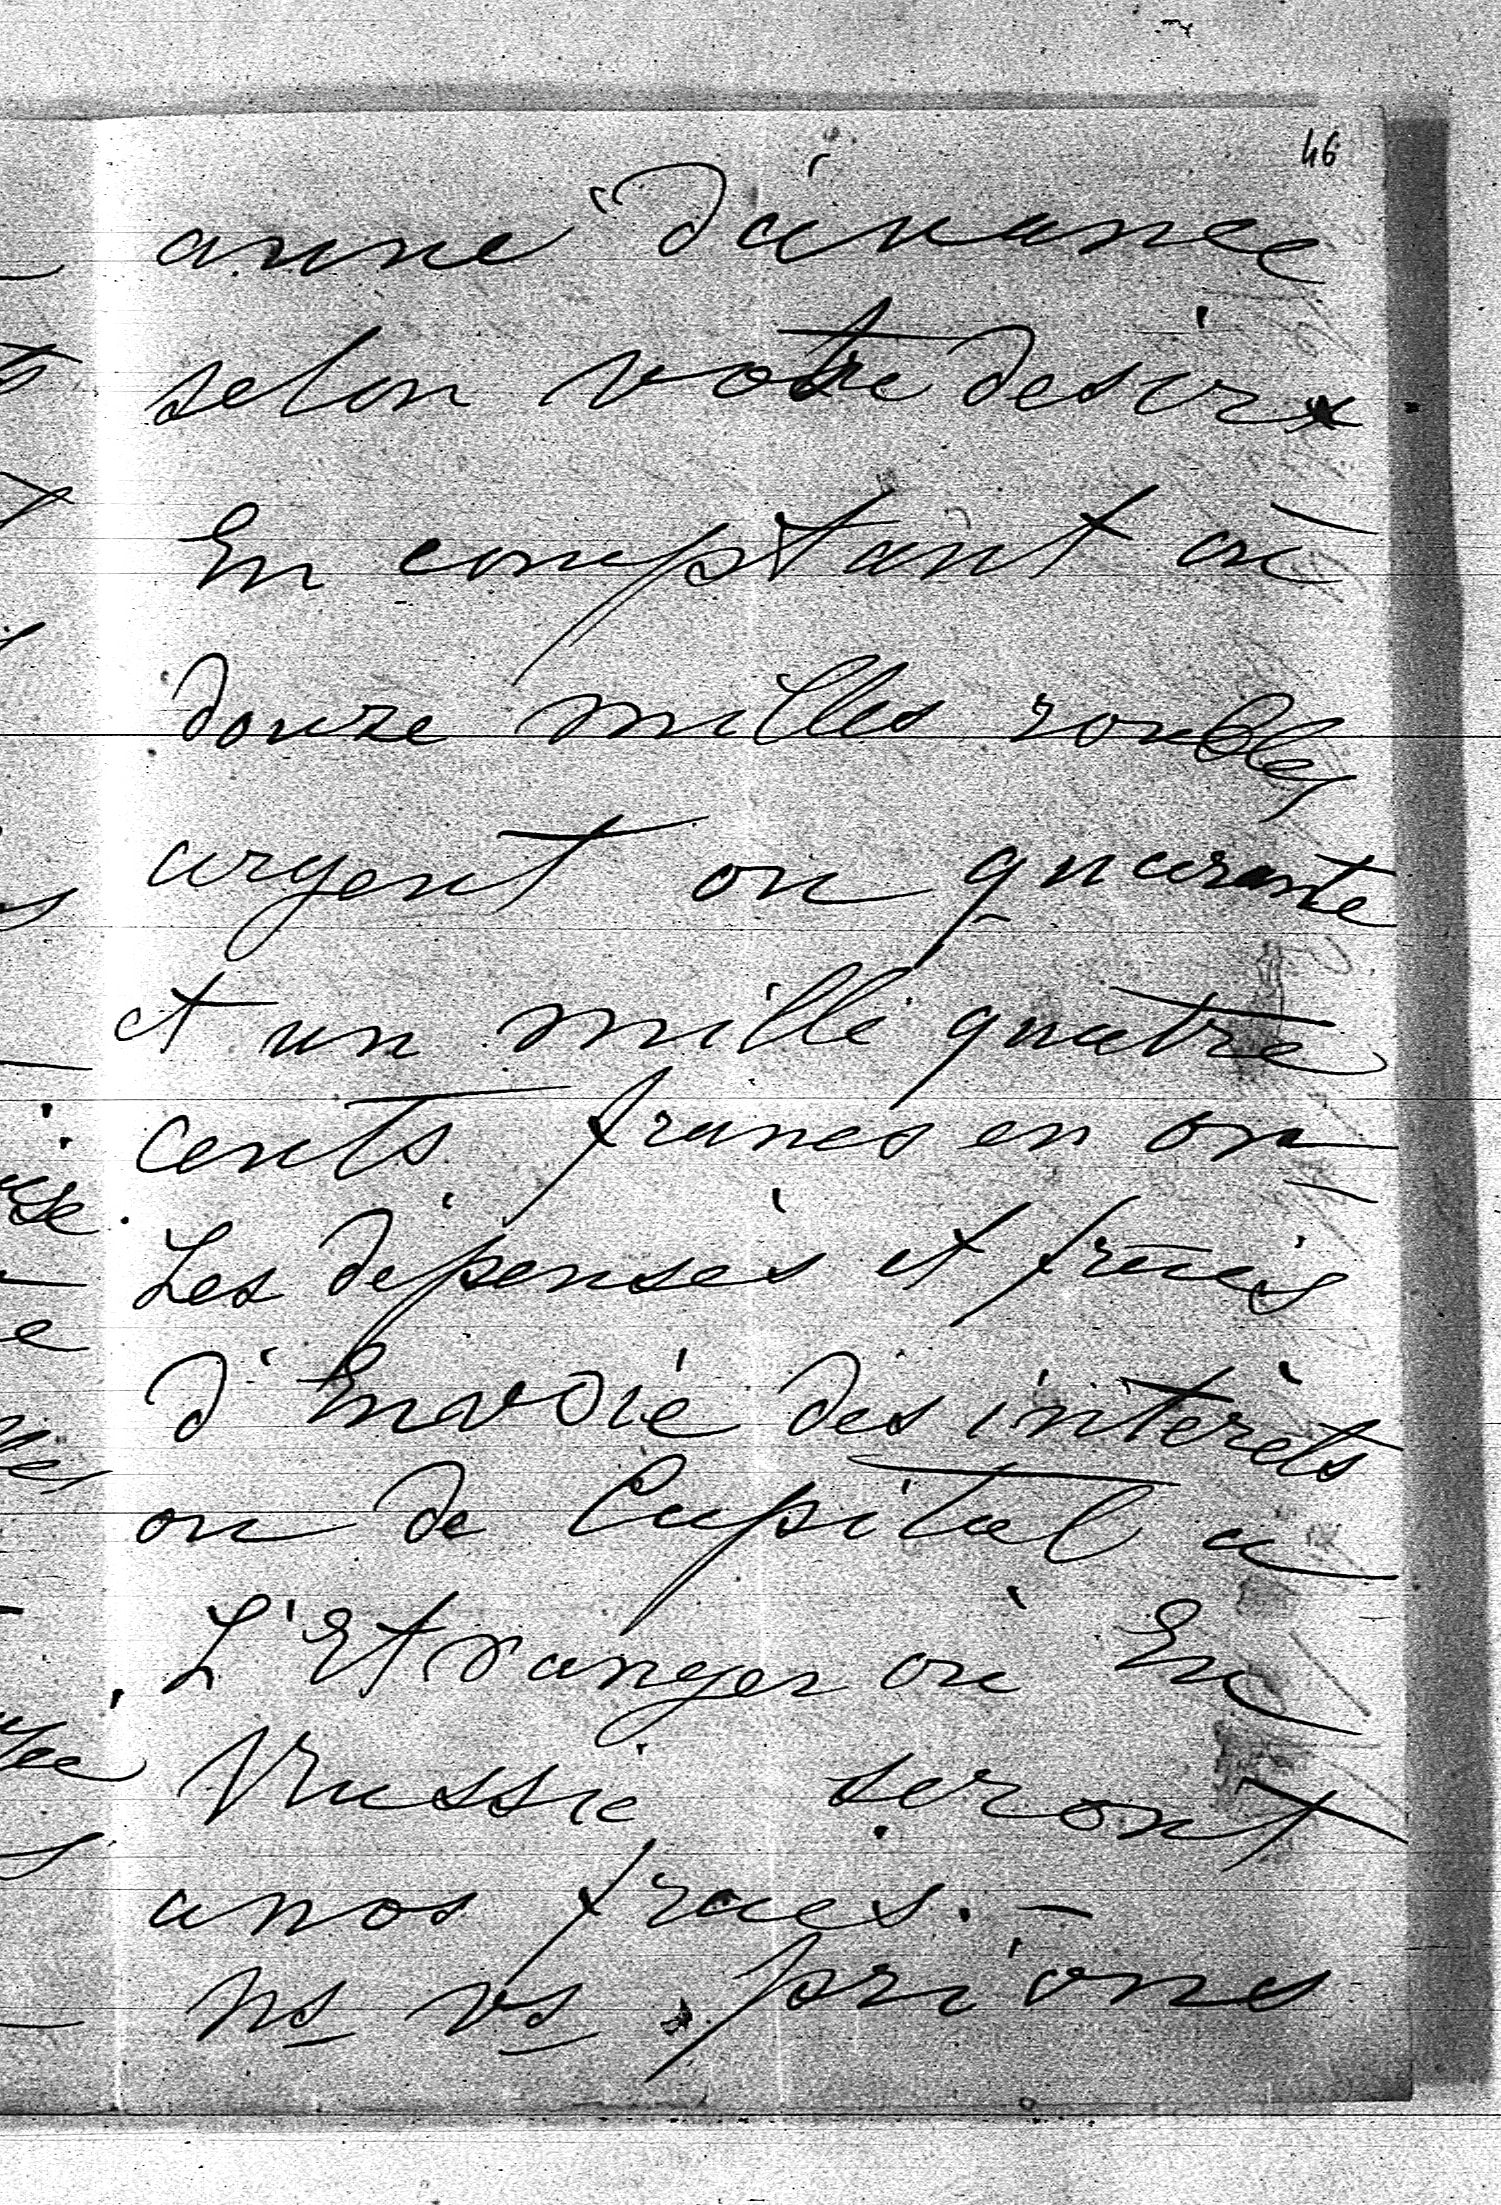 46
anné d'avance
selon votre desir.
En comptant où
douze milles roubles
argent ou quarante
et un mille quatre
cents francs en or
Les dépenses et frais
d'Envoie des interèts
ou de Capital a
L'Etranger où En
Russie seront
a nos fraies. —
ns vs prions